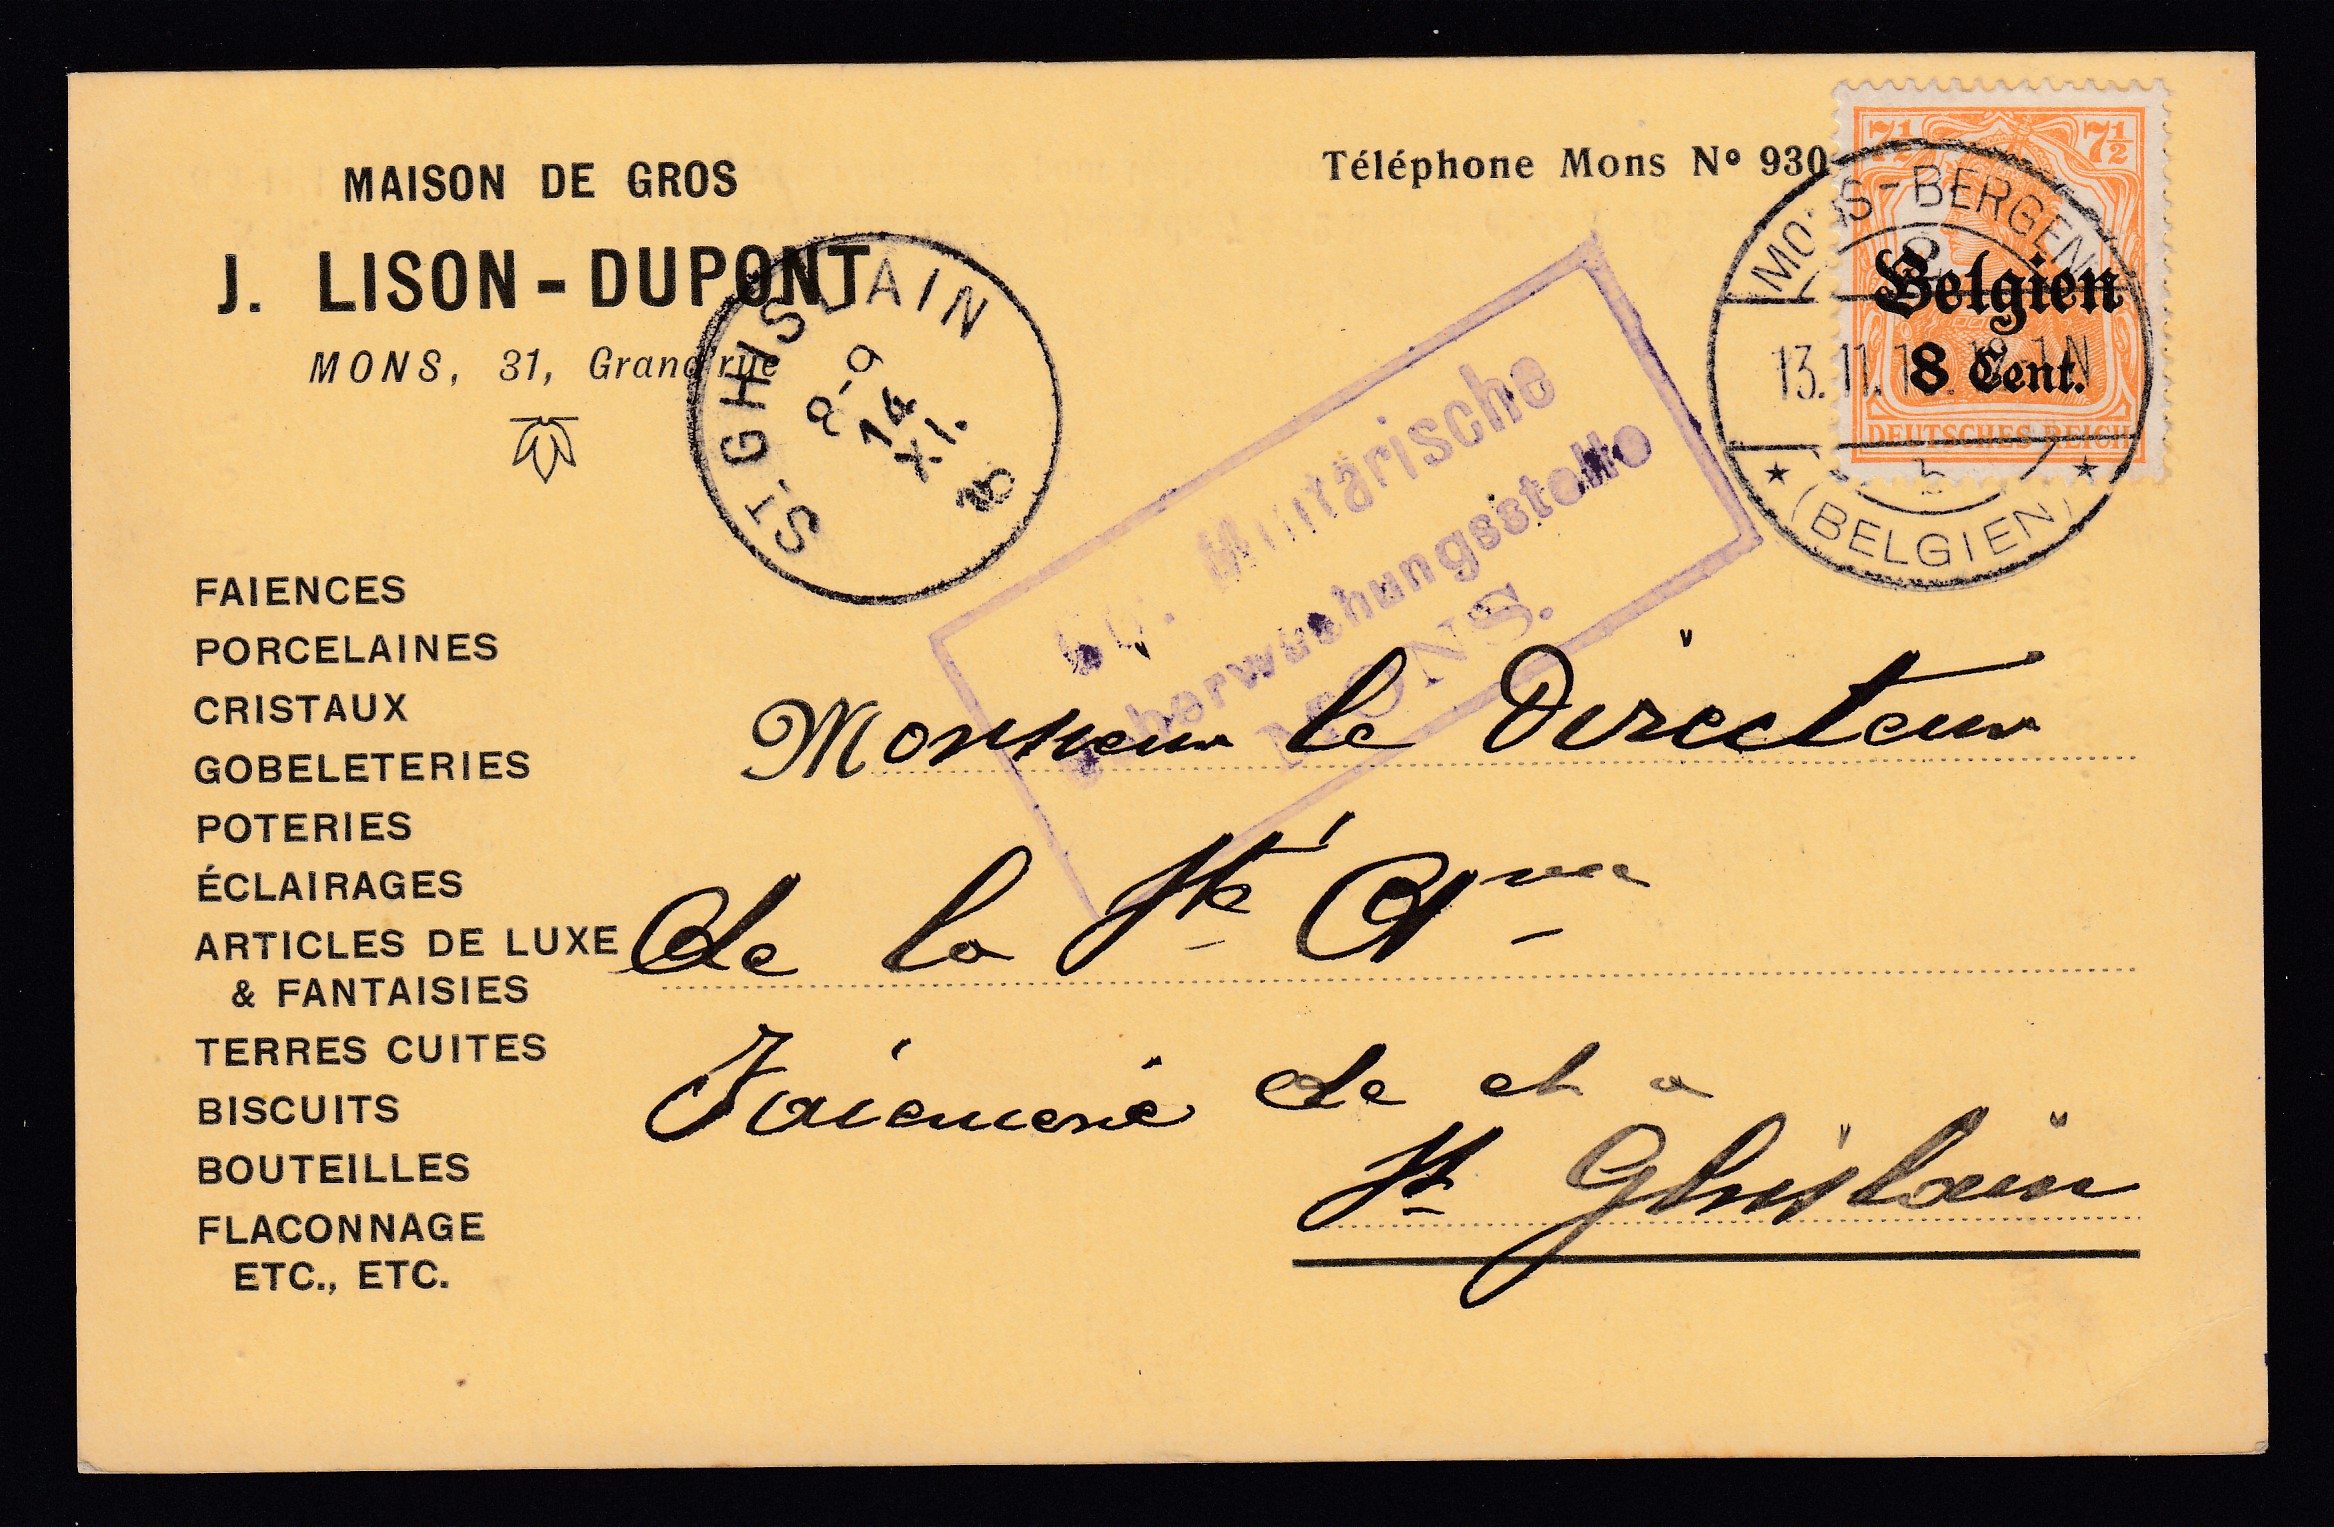 MAISON DE GROS
J. LISON - DUPONT
MONS, 31, Grand'rue
Téléphone Mons Nº 930
7½ 7½
Belgien
8 Cent.
DEUTSCHES REICH
MONS - BERGEN
13.11.
(BELGIEN)
ST GHISLAIN
8-9
14
XI.
Militärische
Ueberwachungsstelle
MONS.
FAIENCES
PORCELAINES
CRISTAUX
GOBELETERIES
POTERIES
ÉCLAIRAGES
ARTICLES DE LUXE
& FANTAISIES
TERRES CUITES
BISCUITS
BOUTEILLES
FLACONNAGE
ETC., ETC.
Monsieur le Directeur
de la Sté Ame
Faïencerie de et à
St Ghislain